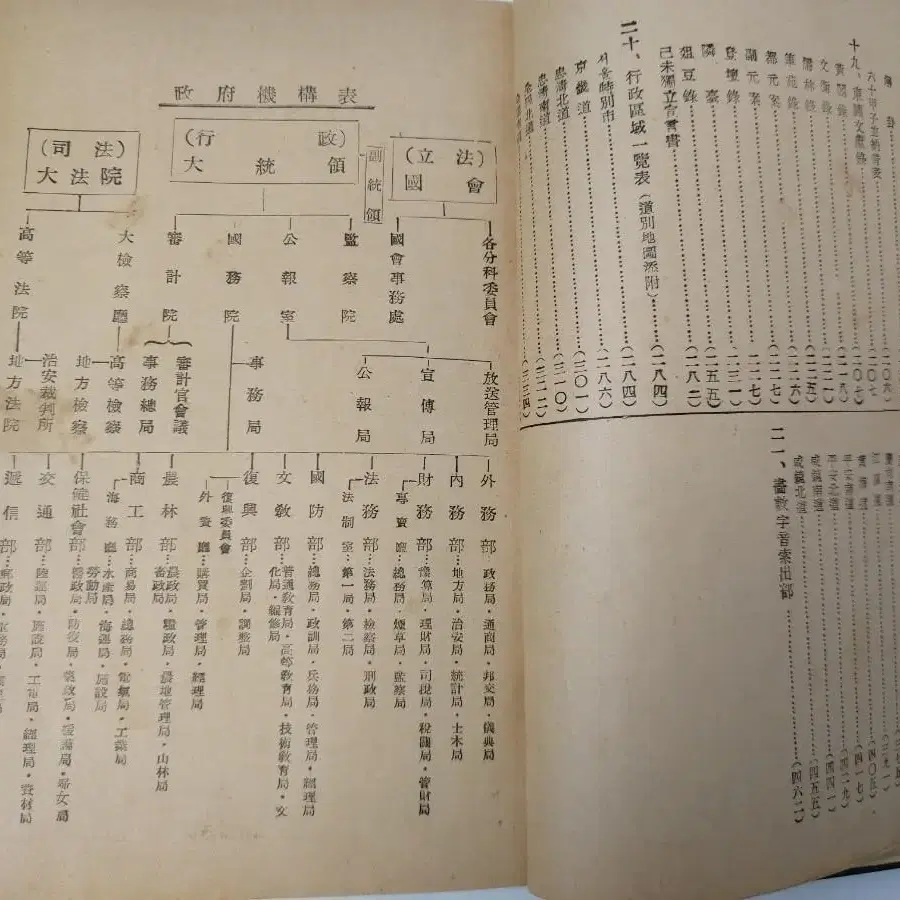 六十甲子並納音表……(二〇七)
十九、東國文獻錄……(二〇七)
黃閣錄……(二一八)
文衡錄……(二二一)
儒林錄……(二二五)
筆苑錄……(二二六)
都元案……(二二七)
副元案……(二二七)
登壇錄……(二三一)
隣臺……(二五五)
俎豆錄……(二八二)
己未獨立宣言書……(二八四)
二十、行政區域一覽表(道別地圖添附)……(二八四)
서울特別市……(二八六)
京畿道……(三〇一)
忠淸北道……(三一〇)
忠淸南道……(三一二)
全羅北道……(三二四)
黃海道……(四〇五)
平安南道……(四一七)
平安北道……(四二九)
咸鏡南道……(四四一)
咸鏡北道……(四五五)
二一、畵數字音索出部……(四六二)
政府機構表
(立法)
國會
(行政)
大統領
副統領
(司法)
大法院
各分科委員會
國會事務處
監察院
公報室
國務院
審計院
大檢察廳
高等法院
放送管理局
宣傳局
公報局
事務局
審計官會議
事務總局
高等檢察
地方檢察
治安裁判所
地方法院
外務部…政務局·通商局·邦交局·儀典局
內務部…地方局·治安局·統計局·土木局
財務部…豫算局·理財局·司稅局·稅關局·管財局
專賣廳…總務局·煙草局·監察局
法務部…法務局·檢察局·刑政局
法制室…第一局·第二局
國防部…總務局·政訓局·兵務局·管理局·經理局
文敎部…普通敎育局·高等敎育局·技術敎育局·文化局·編修局
復興部…企劃局·調整局
復興委員會
外資廳…購買局·管理局·經理局
農林部…農政局·糧政局·農地管理局·山林局
畜政局
商工部…商易局·總務局·電氣局·工業局
海務廳…水產局·海運局·施設局
保健社會部…醫政局·防疫局·藥政局·援護局·婦女局
勞動局
交通部…陸運局·施設局·工電局·經理局·資材局
遞信部…郵政局